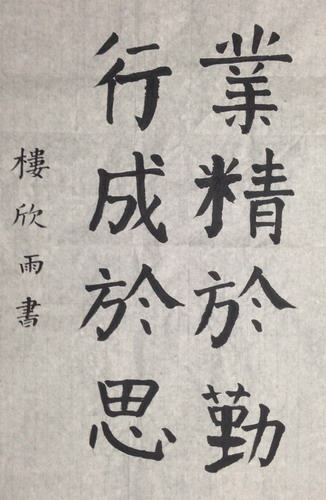 業精於勤
行成於思
樓欣雨書